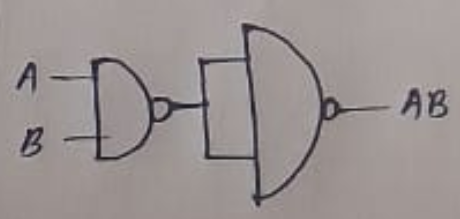 A
B
AB